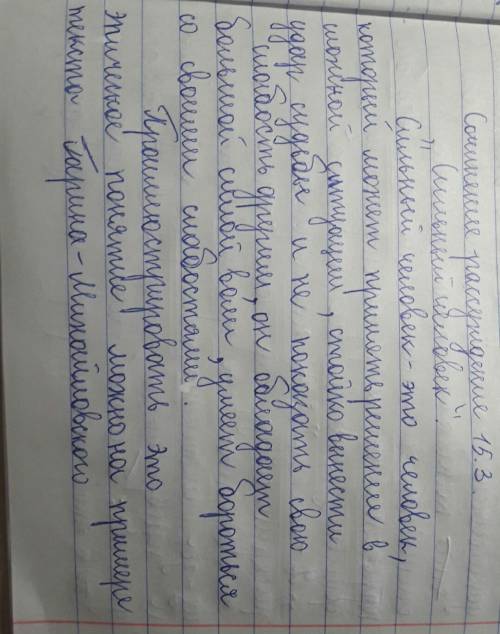 Сочинение рассуждение 15.3.
"Сильный человек".
Сильный человек - это человек,
который может принять решение в
сложной ситуации, стойко вынести
удар судьбы и не показать свою
слабость другим, он обладает
большой силой воли, умеет бороться
со своими слабостями.
Проиллюстрировать это
этическое понятие можно на примере
текста Гарина-Михайловского